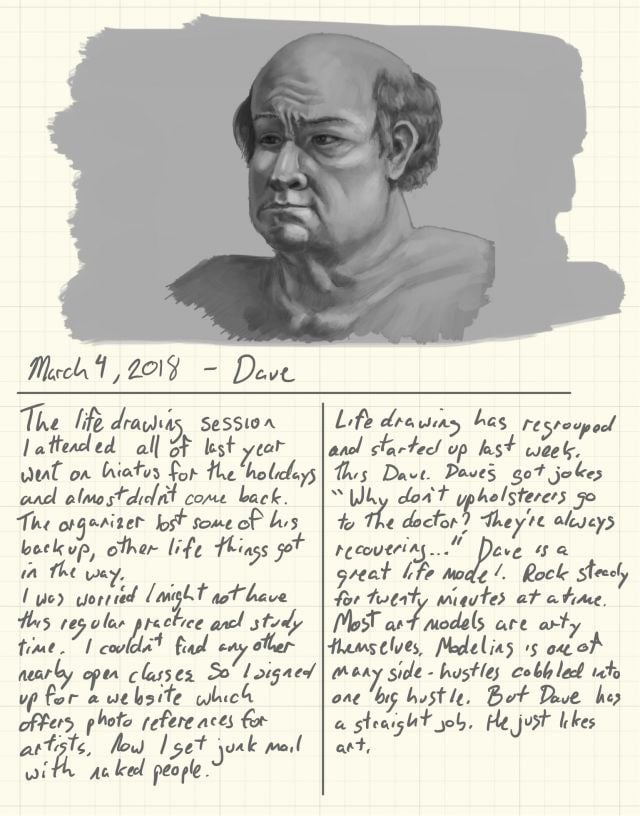 March 4, 2018 - Dave
The life drawing session
I attended all of last year
went on hiatus for the holidays
and almost didn't come back.
The organizer lost some of his
backup, other life things got
in the way.
I was worried I might not have
this regular practice and study
time. I couldn't find any other
nearby open classes So I signed
up for a website which
offers photo references for
artists. Now I get junk mail
with naked people.
Life drawing has regrouped
and started up last week.
This Dave. Dave's got jokes
"Why don't upholsterers go
to the doctor? They're always
recovering..." Dave is a
great life model. Rock steady
for twenty mieutes at a time.
Most art models are arty
themselves. Modeling is one of
many side-hustles cobbled into
one big hustle. But Dave has
a straight job. He just likes
art.